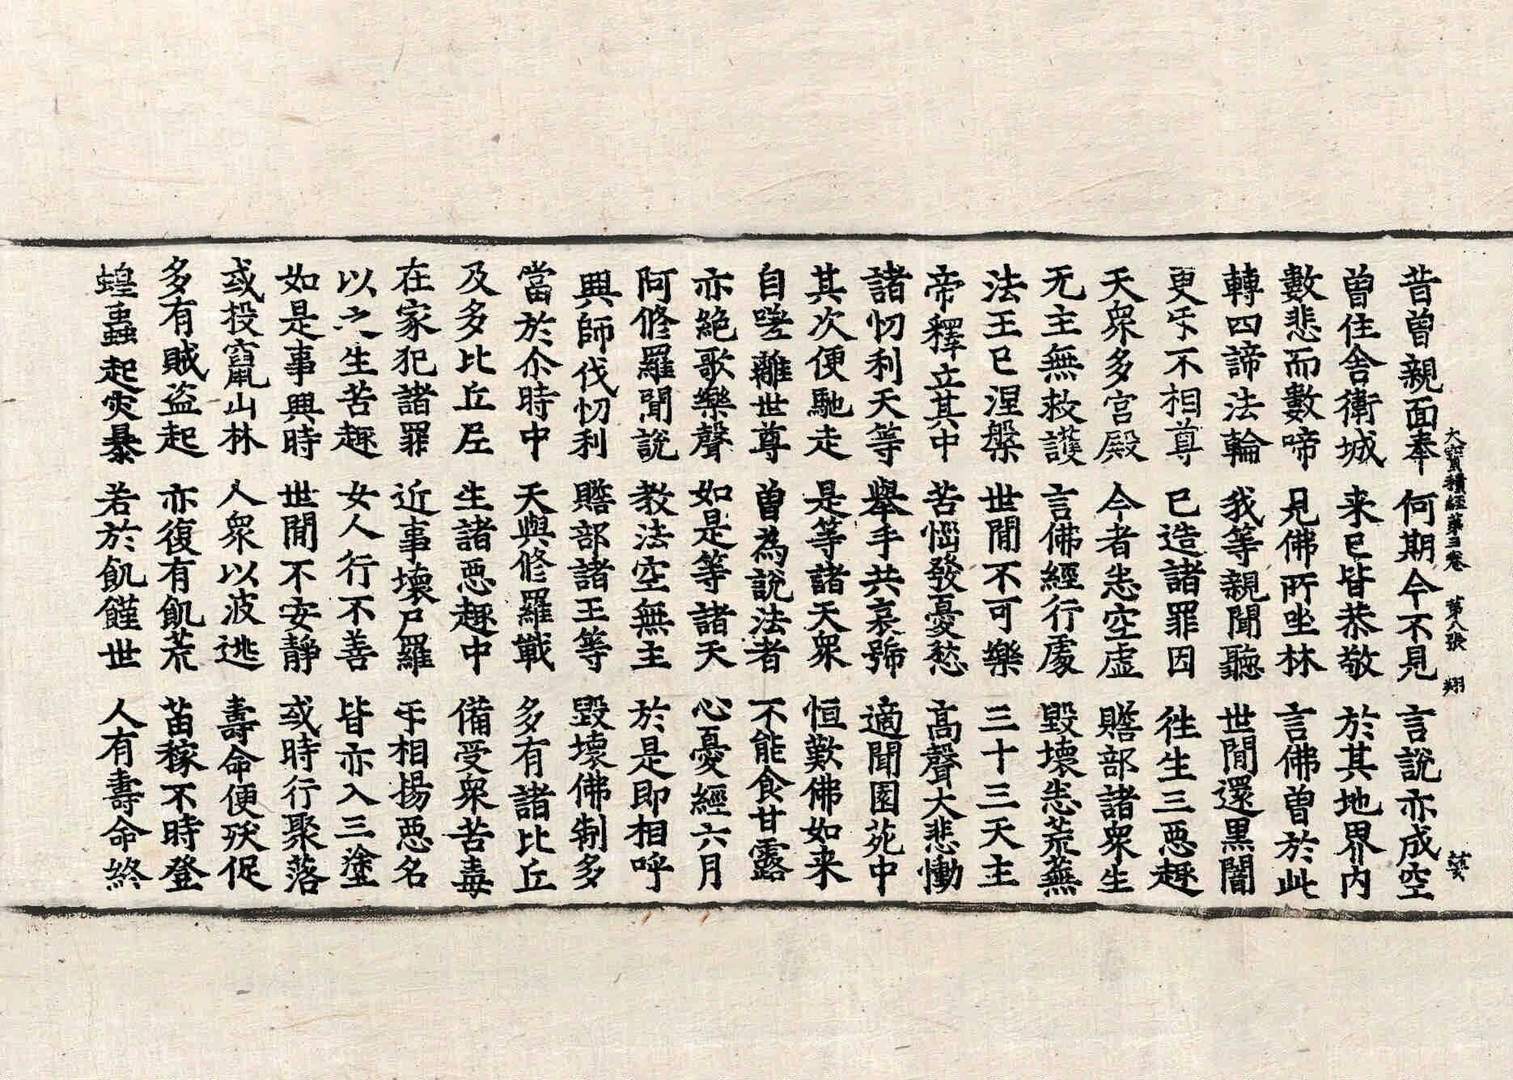 大寶積經第三卷 第八張 翔
昔曾親面奉 何期今不見 言說亦成空
曾住舍衛城 来已皆恭敬 於其地界内
數悲而數啼 見佛所坐林 言佛曾於此
轉四諦法輪 我等親聞聽 世閒還黒闇
更互不相尊 已造諸罪因 徃生三惡趣
天衆多宮殿 今者悉空虛 贍部諸衆生
无主無救護 言佛經行處 毀壞悉荒蕪
法王已涅槃 世閒不可樂 三十三天主
帝釋立其中 苦惱發憂愁 高聲大悲慟
諸忉利天等 舉手共哀號 適聞園苑中
其次便馳走 是等諸天衆 恒歎佛如来
自嗟離世尊 曾為說法者 不能食甘露
亦絶歌樂聲 如是等諸天 心憂經六月
阿修羅聞說 教法空無主 於是即相呼
興師伐忉利 贍部諸王等 毀壞佛制多
當於尒時中 天與修羅戰 多有諸比丘
及多比丘尼 生諸惡趣中 備受衆苦毒
在家犯諸罪 近事壞尸羅 互相揚惡名
以之生苦趣 女人行不善 皆亦入三塗
如是事興時 世閒不安靜 或時行聚落
或投竄山林 人衆以波逃 壽命便殀促
多有賊盗起 亦復有飢荒 苗稼不時登
蝗蟲起灾暴 若於飢饉世 人有壽命終